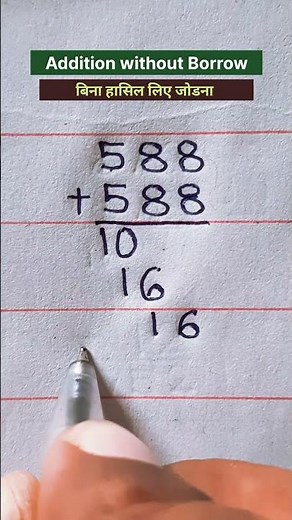 Addition without Borrow
बिना हासिल लिए जोडना
588
+588
10
16
16